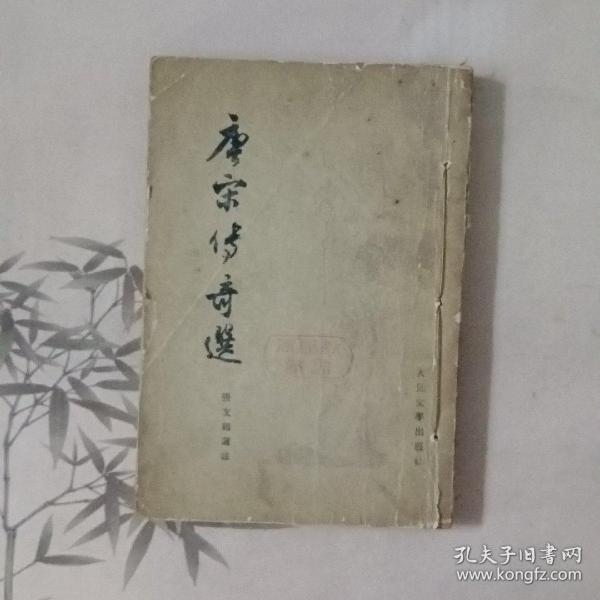 唐宋传奇選
張友鶴選註
人民文學出版社
孔夫子旧書网
www.kongfz.com